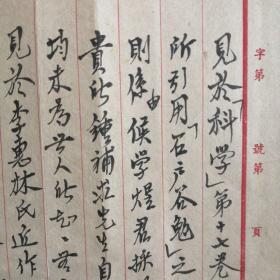 字第　號第　頁
見於「科學」第十七卷
所引用「石戶谷勉」之
則係由侯學煜君採
貴所鍾補求先生自
均未為世人所知
見於李惠林氏近作